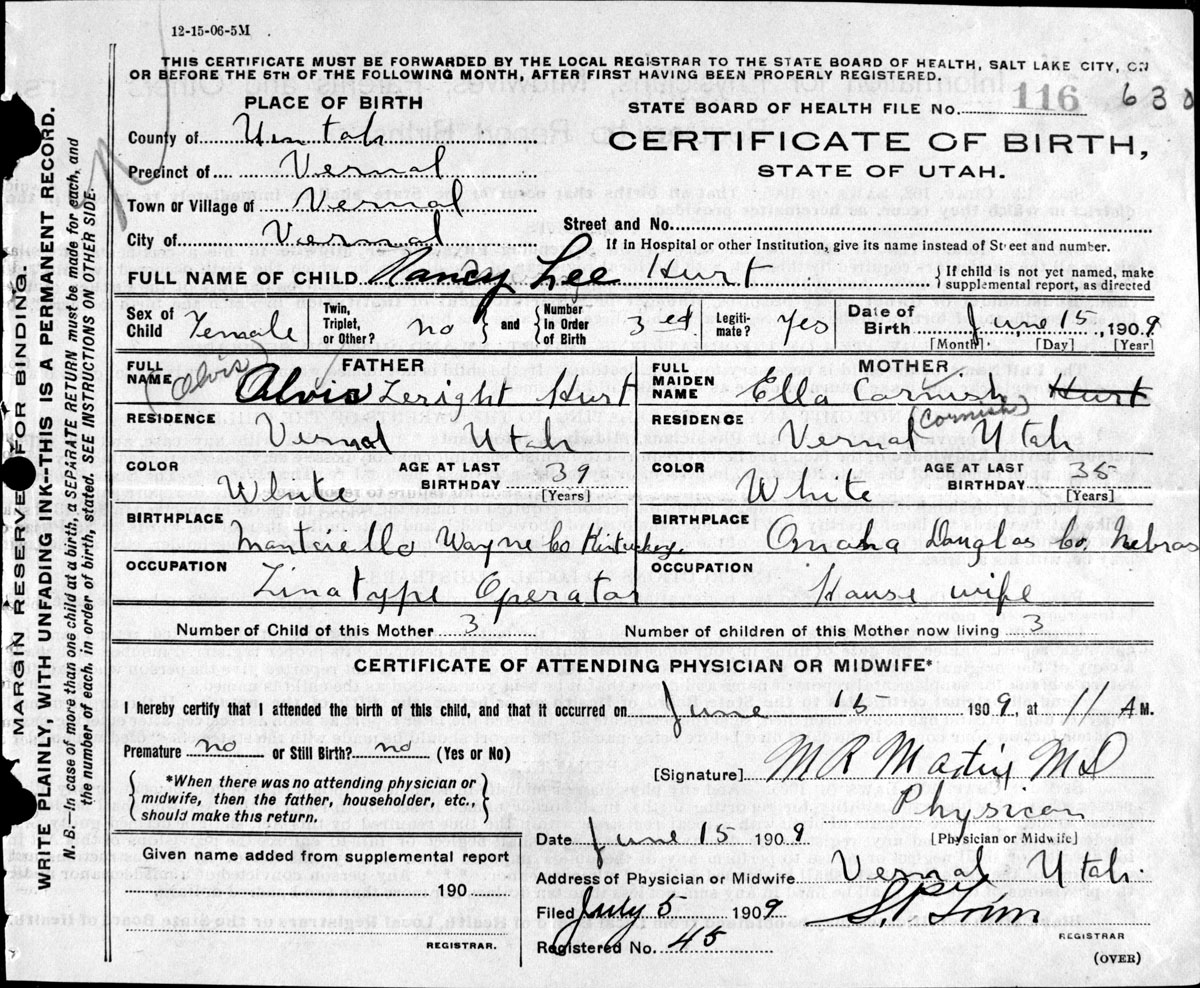 12-15-06-5M
THIS CERTIFICATE MUST BE FORWARDED BY THE LOCAL REGISTRAR TO THE STATE BOARD OF HEALTH, SALT LAKE CITY, ON
OR BEFORE THE 5TH OF THE FOLLOWING MONTH, AFTER FIRST HAVING BEEN PROPERLY REGISTERED.
MARGIN RESERVED FOR BINDING.
WRITE PLAINLY, WITH UNFADING INK—THIS IS A PERMANENT RECORD.
N. B. In case of more than one child at a birth, a SEPARATE RETURN must be made for each, and
the number of each. in order of birth, stated. SEE INSTRUCTIONS ON OTHER SIDE.
PLACE OF BIRTH
STATE BOARD OF HEALTH FILE No. 116 630
County of Uintah
CERTIFICATE OF BIRTH,
STATE OF UTAH.
Precinct of Vernal
Town or Village of Vernal
Street and No.
City of Vernal
If in Hospital or other Institution, give its name instead of Street and number.
FULL NAME OF CHILD Nancy Lee Hurt
If child is not yet named, make
supplemental report, as directed
Sex of Child Female Twin, Triplet, or Other? no and Number In Order of Birth 3 ed Legiti- mate? Yes Date of Birth June 15, 1909
[Month] [Day] [Year]
FATHER
FULL NAME (Alvis) Alvis Hurt
MOTHER
FULL MAIDEN NAME Ella Cornish Hurt
(Cornish)
RESIDENCE Vernal Utah
RESIDENCE Vernal Utah
COLOR White AGE AT LAST BIRTHDAY 39 [Years]
COLOR White AGE AT LAST BIRTHDAY 35 [Years]
BIRTHPLACE Montciello Wayne Co Kintuckey.
BIRTHPLACE Omaha Douglas Co, Nebras
OCCUPATION Linatype Operator
OCCUPATION House wife
Number of Child of this Mother 3
Number of children of this Mother now living 3
CERTIFICATE OF ATTENDING PHYSICIAN OR MIDWIFE*
I hereby certify that I attended the birth of this child, and that it occurred on June 15 1909, at 11 A M.
Premature no or Still Birth? no (Yes or No)
*When there was no attending physician or
midwife, then the father, householder, etc.,
should make this return.
[Signature] M D
Physican
[Physician or Midwife]
Date June 15 1909
Given name added from supplemental report
190
REGISTRAR.
Address of Physician or Midwife. Vernal Utah.
Filed July 5 1909
REGISTRAR
Registered No. 45
(OVER)